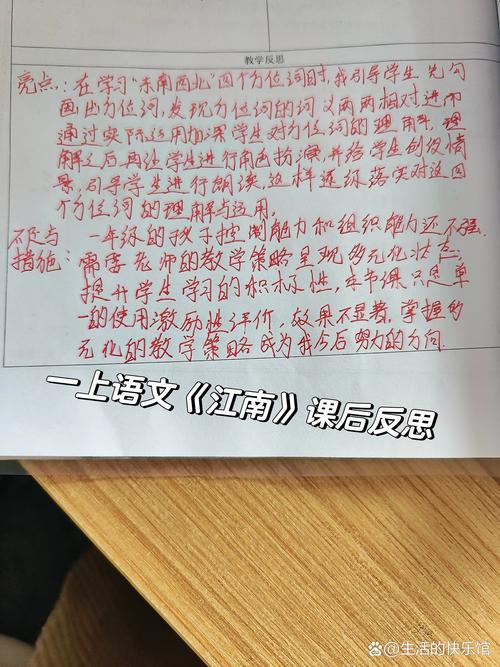 教学反思
亮点：在学习"东南西北"四个方位词时，我引导学生先勾
画出方位词，发现方位词的词义两两相对，进而
通过实际运用加深学生对方位词的理解，理
解之后再让学生进行角色扮演，并给学生创设情
景，引导学生进行朗读，这样逐级落实对这四
个方位词的理解与运用。
不足与 一年级的孩子控制能力和组织能力还不强
措施：需要老师的教学策略呈现多元化状态，
提升学生学习的积极性，本节课只是单
一的使用激励性评价，效果不显著，掌握多
元化的教学策略成为我今后努力的方向.
一上语文《江南》课后反思
百家号/生活的快乐馆